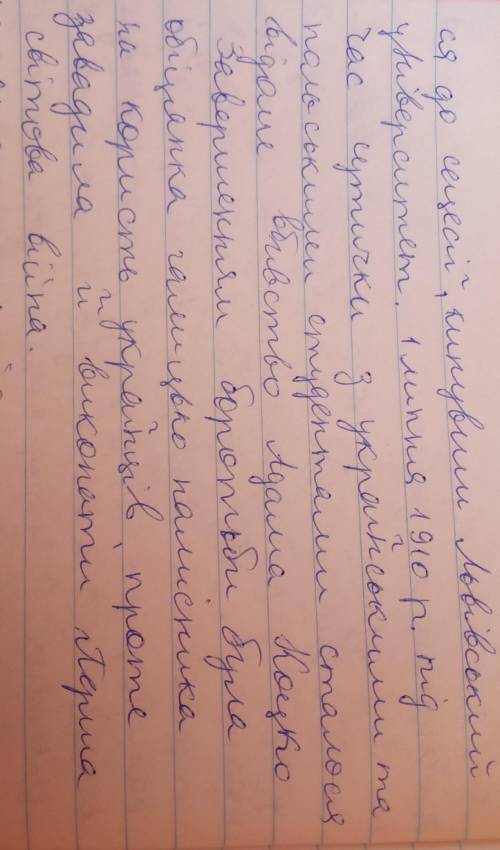 ся до сецесії, кинувши Львівський
університет. 1 липня 1910 р. під
час сутички з українськими та
польськими студентами сталося
відоме вбивство Адама Коцко
Завершенням боротьби була
обіцянка галицького намісника
на користь українців, проте
завадила її виконати Перша
світова війна.